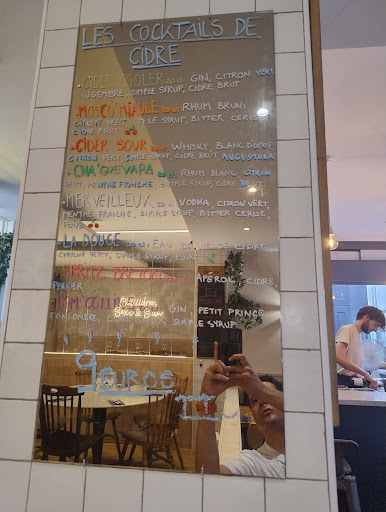 LES COCKTAILS DE
CIDRE
CIDER COOLER 20cl. GIN, CITRON VERT
GINGEMBRE, SIMPLE SYRUP, CIDRE BRUT
MOSCO'MIAULE 20cl RHUM BRUN,
CITRON VERT, SIMPLE SYRUP, BITTER CERISE,
CIDRE BRUT
CIDER SOUR 20cl WHISKY, BLANC D'OEUF
CITRON VERT SIMPLE SYRUP, CIDRE BRUT, ANGUSTURA
CHA'GUEVARA 20cl RHUM BLANC, CITRON
VERT, MENTHE FRAICHE, SIMPLE SYRUP, CIDRE
MERVEILLEUX 20cl VODKA, CITRON VERT,
MENTHE FRAICHE, SIMPLE SYRUP, BITTER CERISE,
POIRÉ
LA DOUCE 20cl EAU DE VIE DE CIDRE,
CITRON VERT, SIMPLE SYRUP, POIRÉ
SPRITZ BRETON APEROL, CIDRE,
PERRIER
GIN, PETIT PRINCE
CONCOMBRE, SIMPLE SYRUP
Cidre,
Sexe & Sun
9EUROS